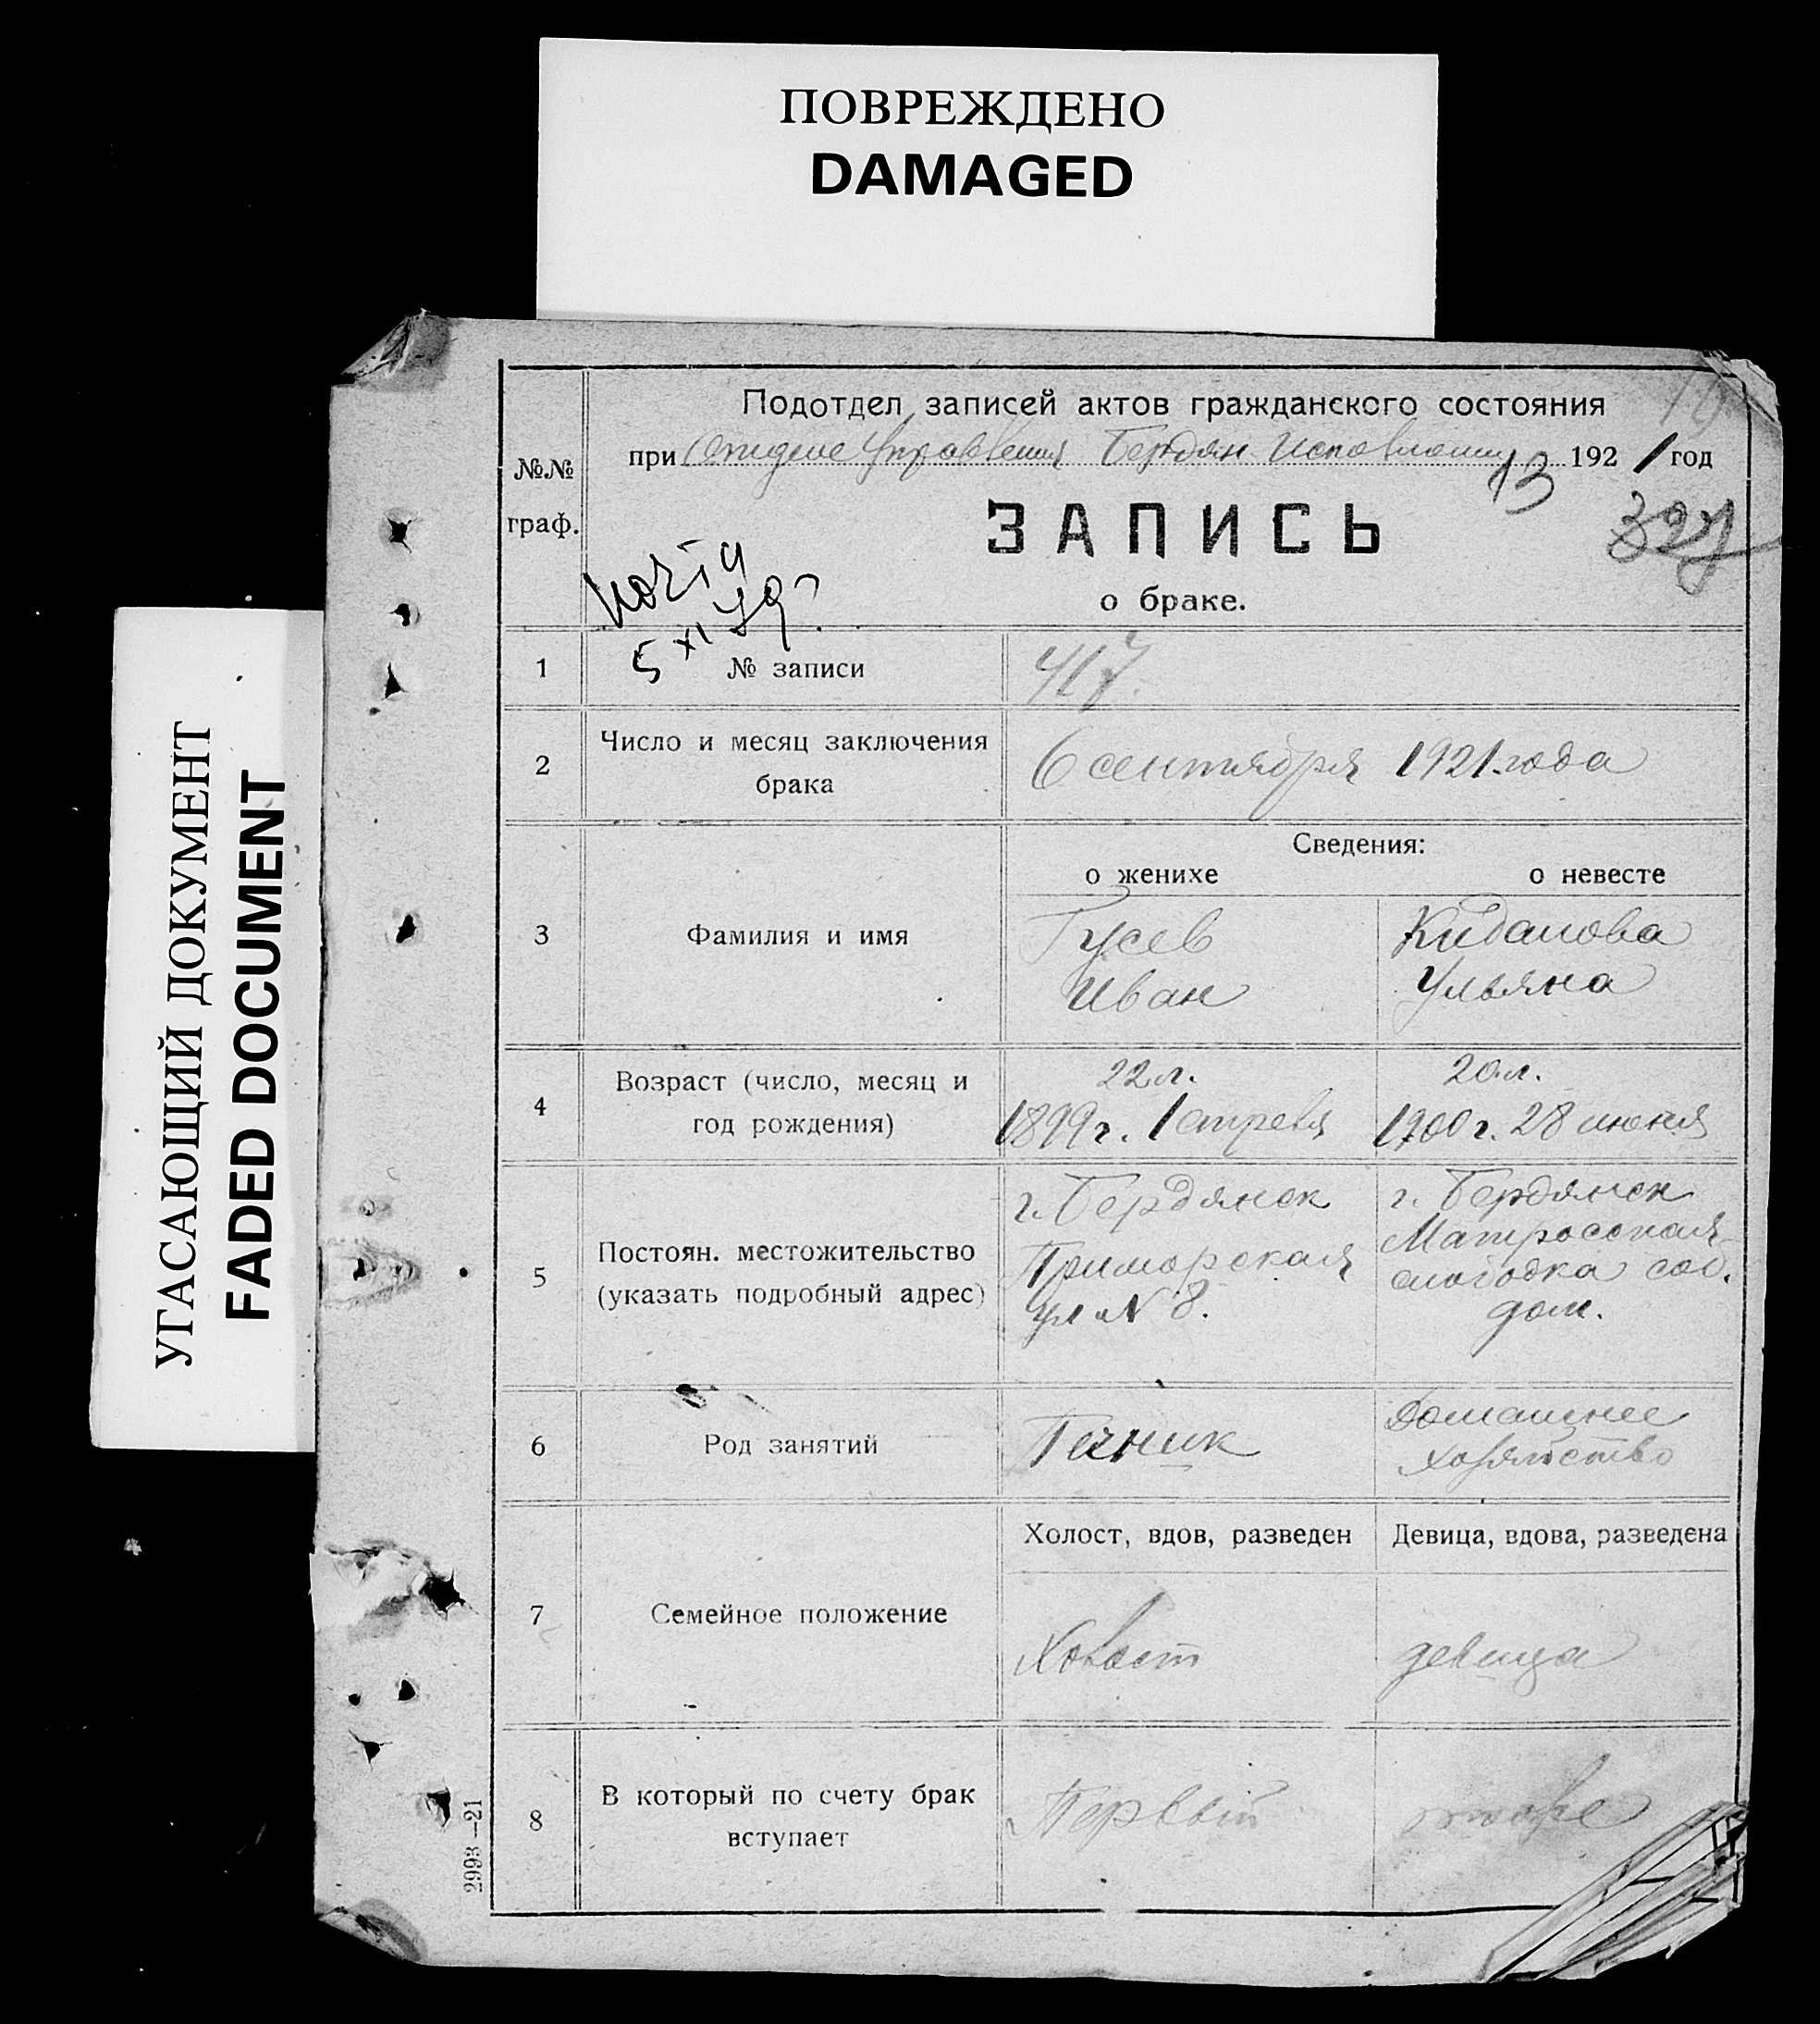 ПОВРЕЖДЕНО
DAMAGED
УГАСАЮЩИЙ ДОКУМЕНТ
FADED DOCUMENT
Подотдел записей актов гражданского состояния
при Отделе Управления Бердян. Исполкома 1921 год
13
№№
граф.
ЗАПИСЬ
327
о браке.
копия
5 XI 79
1 № записи 417.
2 Число и месяц заключения
брака
6 сентября 1921 года
Сведения:
о женихе о невесте
3 Фамилия и имя
Гусев
Иван
Кидалова
Ульяна
4 Возраст (число, месяц и
год рождения)
22 л.
1899 г. 1 апреля
20 л.
1900 г. 28 июня
5 Постоян. местожительство
(указать подробный адрес)
г. Бердянск
Приморская
ул № 8.
г. Бердянск
Матросская
слободка соб.
дом.
6 Род занятий
Домашнее
хозяйство
Холост, вдов, разведен Девица, вдова, разведена
7 Семейное положение
Холост
девица
8 В который по счету брак
вступает
Первый
тоже
2993—21